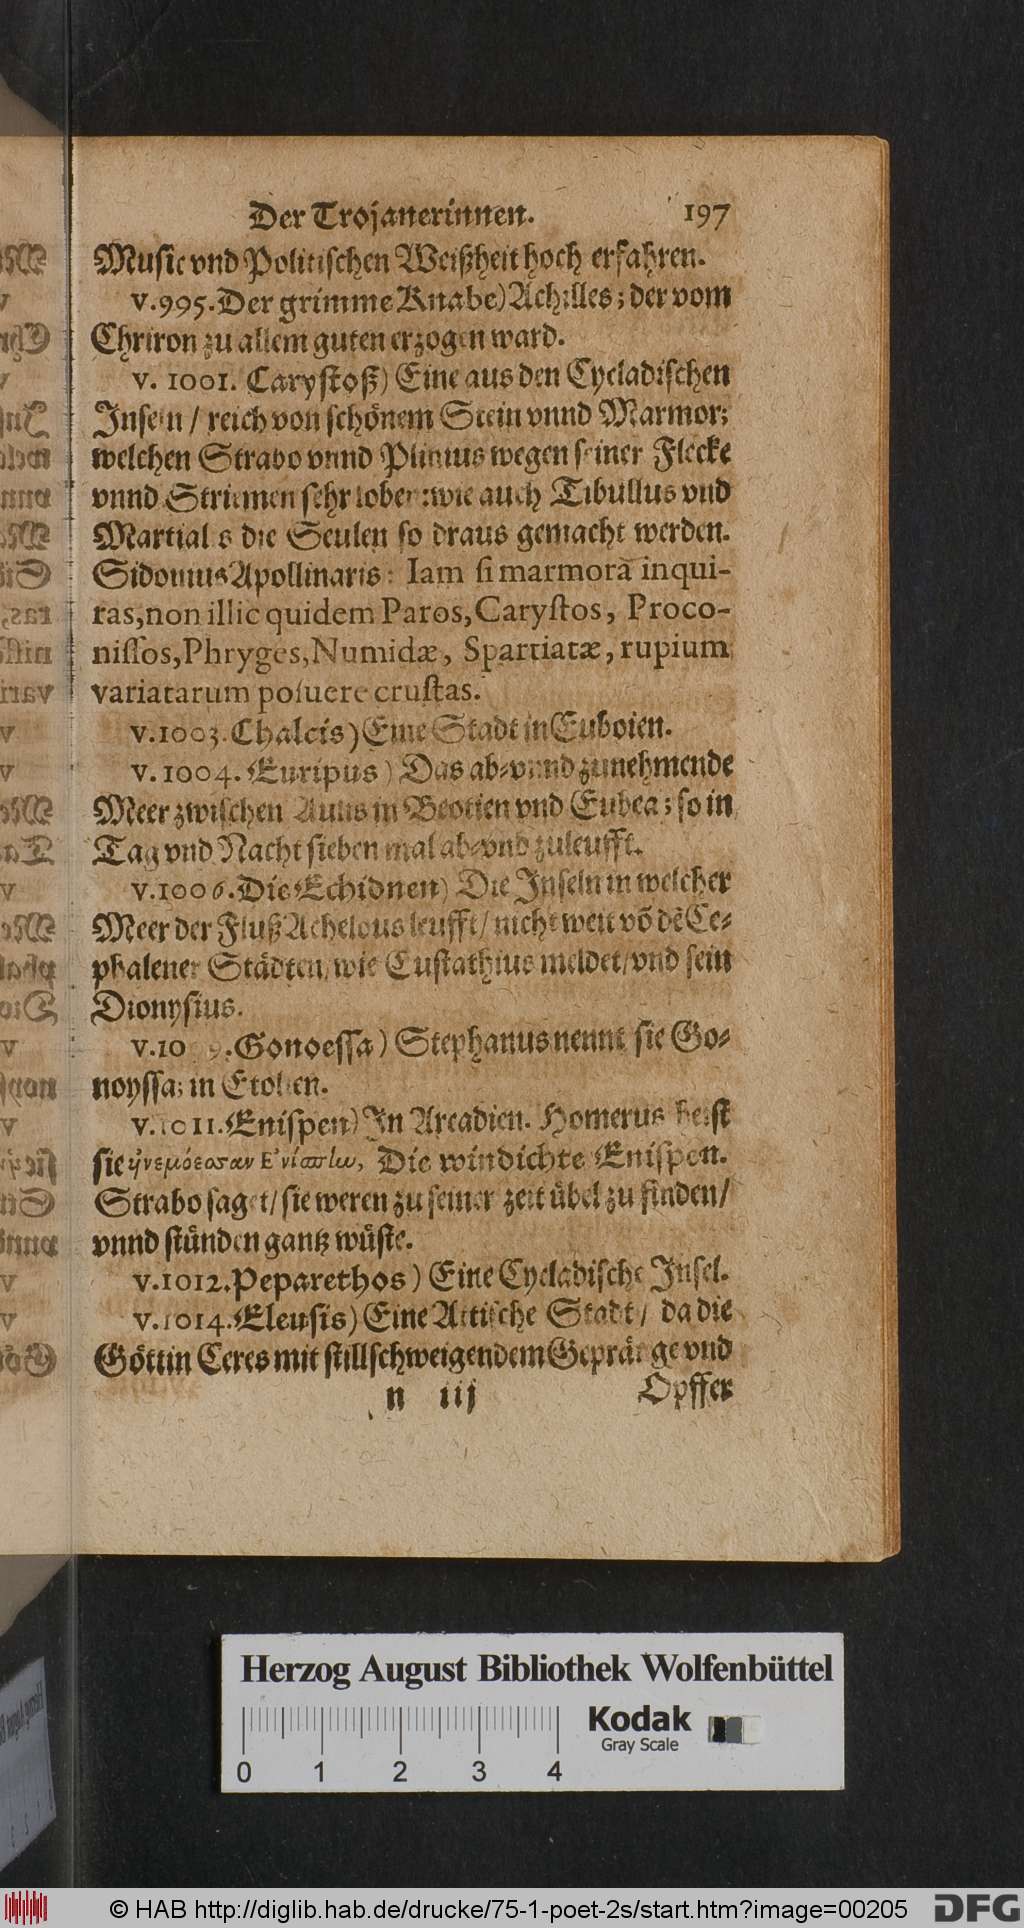 Der Trojanerinnen. 197
Music vnd Politischen Weißheit hoch erfahren.
v.995. Der grimme Knabe) Achilles; der vom
Chriron zu allem guten erzogen ward.
v. 1001. Carystoß) Eine aus den Cycladischen
Inseln / reich von schönem Stein vnnd Marmor;
welchen Strabo vnnd Plinius wegen seiner Flecke
vnnd Striemen sehr loben: wie auch Tibullus vnd
Martialis die Seulen so draus gemacht werden.
Sidonius Apollinaris: Iam si marmorā inqui-
ras, non illic quidem Paros, Carystos, Proco-
nissos, Phryges, Numidæ, Spartiatæ, rupium
variatarum posuere crustas.
v.1003. Chalcis) Eine Stadt in Euboien.
v. 1004. Euripus) Das ab-vnnd zunehmende
Meer zwischen Aulis in Beotien vnd Eubea; so in
Tag vnd Nacht sieben mal ab-vnd zuleufft.
v.1006. Die Echidnen) Die Inseln in welcher
Meer der Fluß Achelous leufft / nicht weit võ dẽ Ce-
phalener Städten, wie Eustathius meldet, vnd sein
Dionysius.
Gonoessa) Stephanus nennt sie Go-
noyssa; in Etolien.
v.1011. Enispen) In Arcadien. Homerus heist
sie ἠνεμόεσσαν Ἐνίσπην, Die windichte Enispen.
Strabo saget / sie weren zu seiner zeit übel zu finden /
vnnd stünden gantz wüste.
v.1012. Peparethos) Eine Cycladische Insel.
v.1014. Eleusis) Eine Attische Stadt / da die
Göttin Ceres mit stillschweigendem Gepränge vnd
n iij Opffer
Herzog August Bibliothek Wolfenbüttel
Kodak
Gray Scale
0 1 2 3 4
© HAB http://diglib.hab.de/drucke/75-1-poet-2s/start.htm?image=00205 DFG